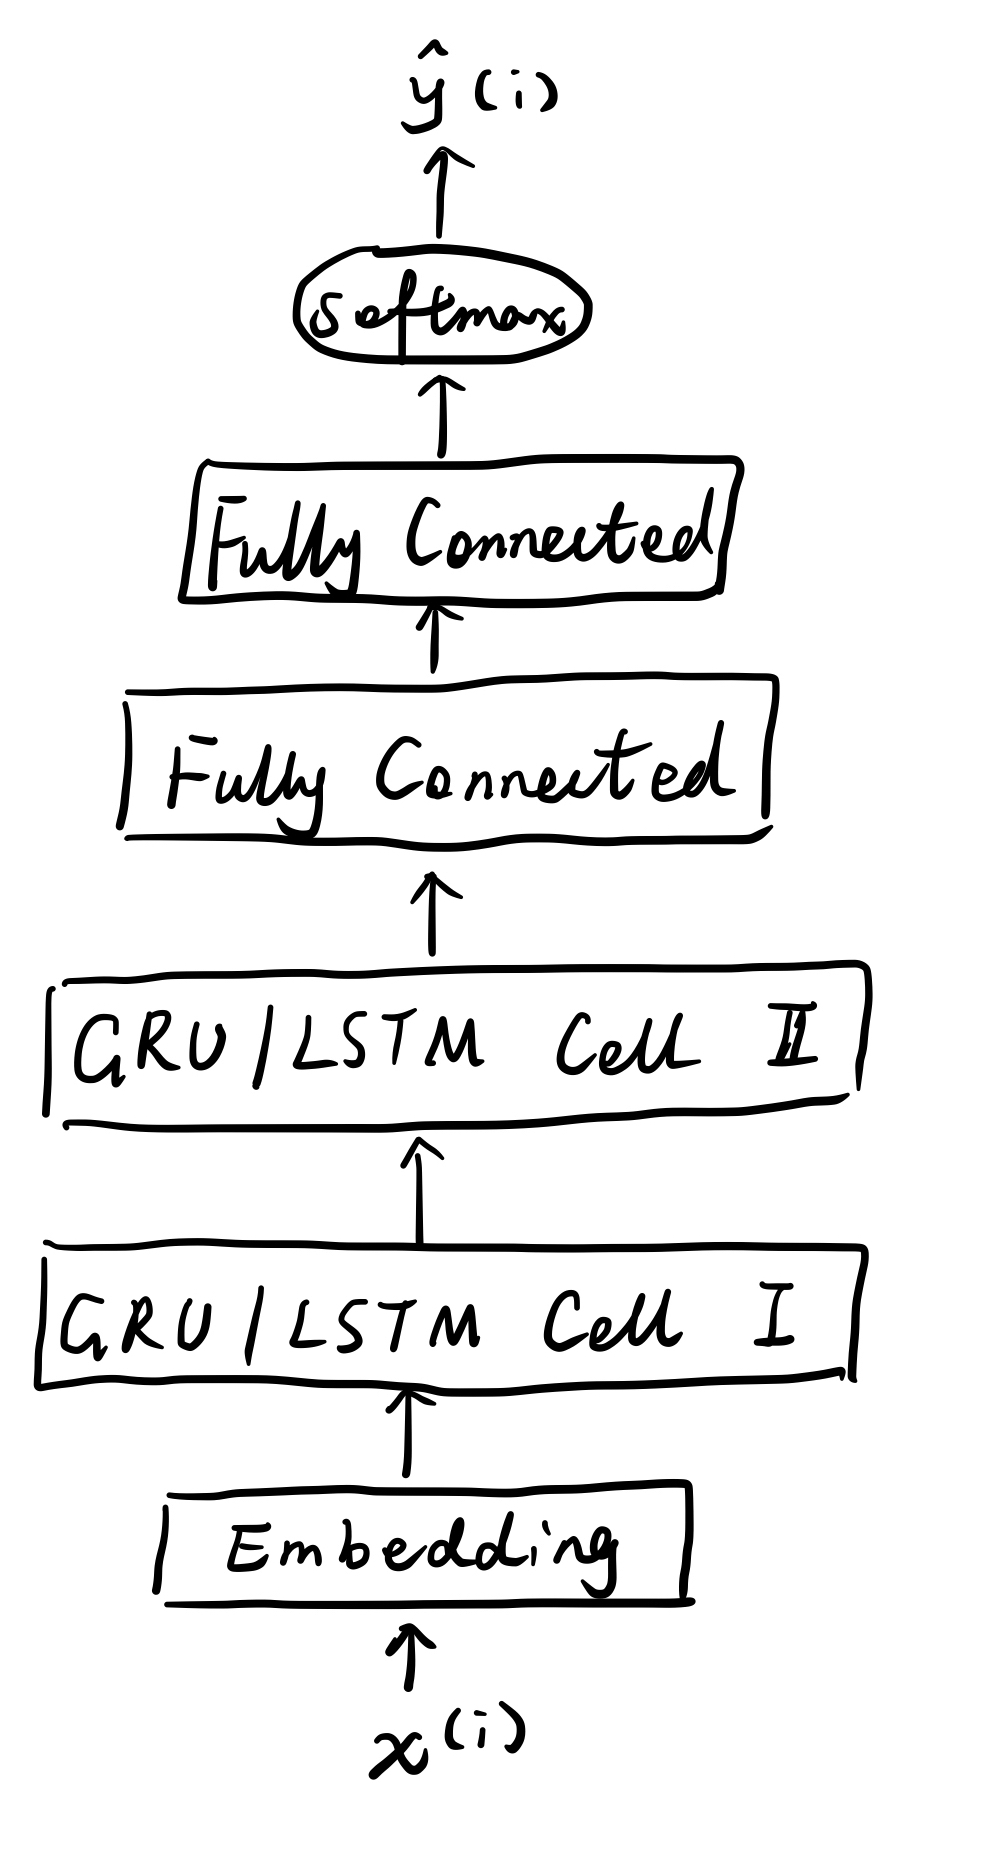 ŷ(i)
softmax
Fully Connected
Fully Connected
GRU/LSTM Cell II
GRU/LSTM Cell I
Embedding
x(i)